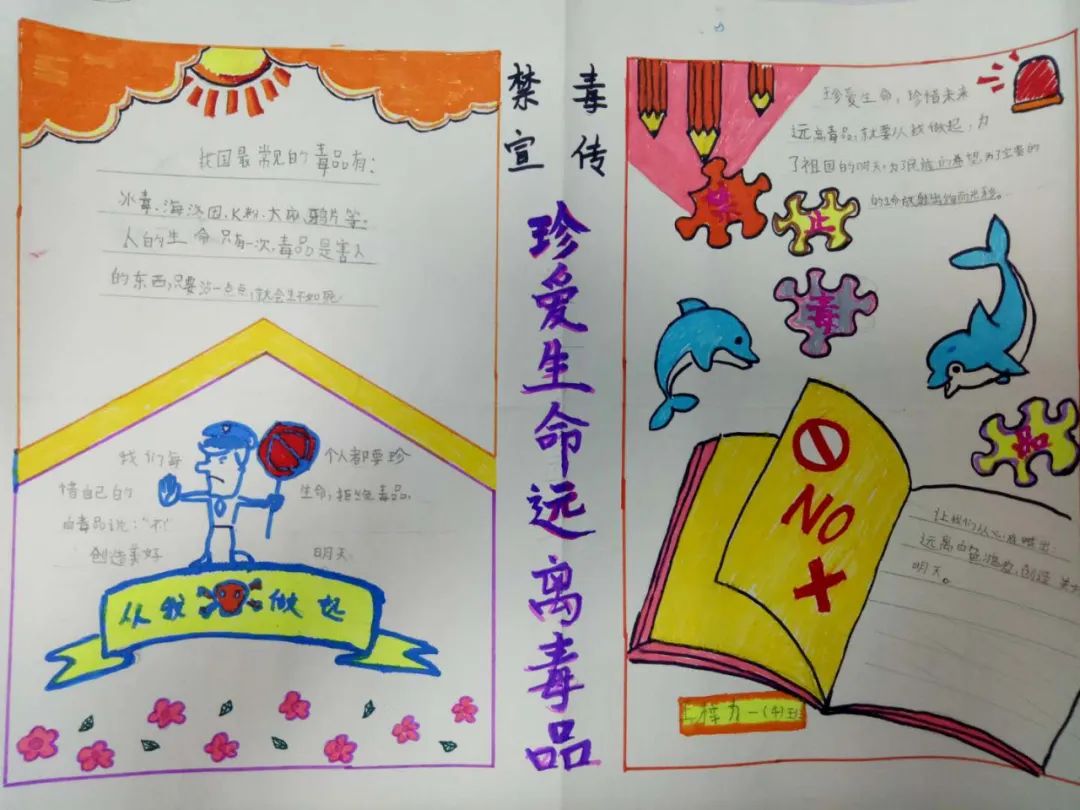 我国最常见的毒品有:
冰毒、海洛因、K粉、大麻、鸦片等。
人的生命只有一次,毒品是害人
的东西,只要沾一点点,就会生不如死
我们每个人都要珍
惜自己的生命,拒绝毒品,
向毒品说:“不!”
创造美好明天
从我做起
禁毒
宣传
珍爱生命远离毒品
珍爱生命,珍惜未来
远离毒品,就要从我做起,为
了祖国的明天,为了民族的希望,为了宝贵的
的生命放射出绚丽光彩。
禁
止
毒
品
NO
让我们从心底喊出:
远离白色
创造
明天。
一(4)班